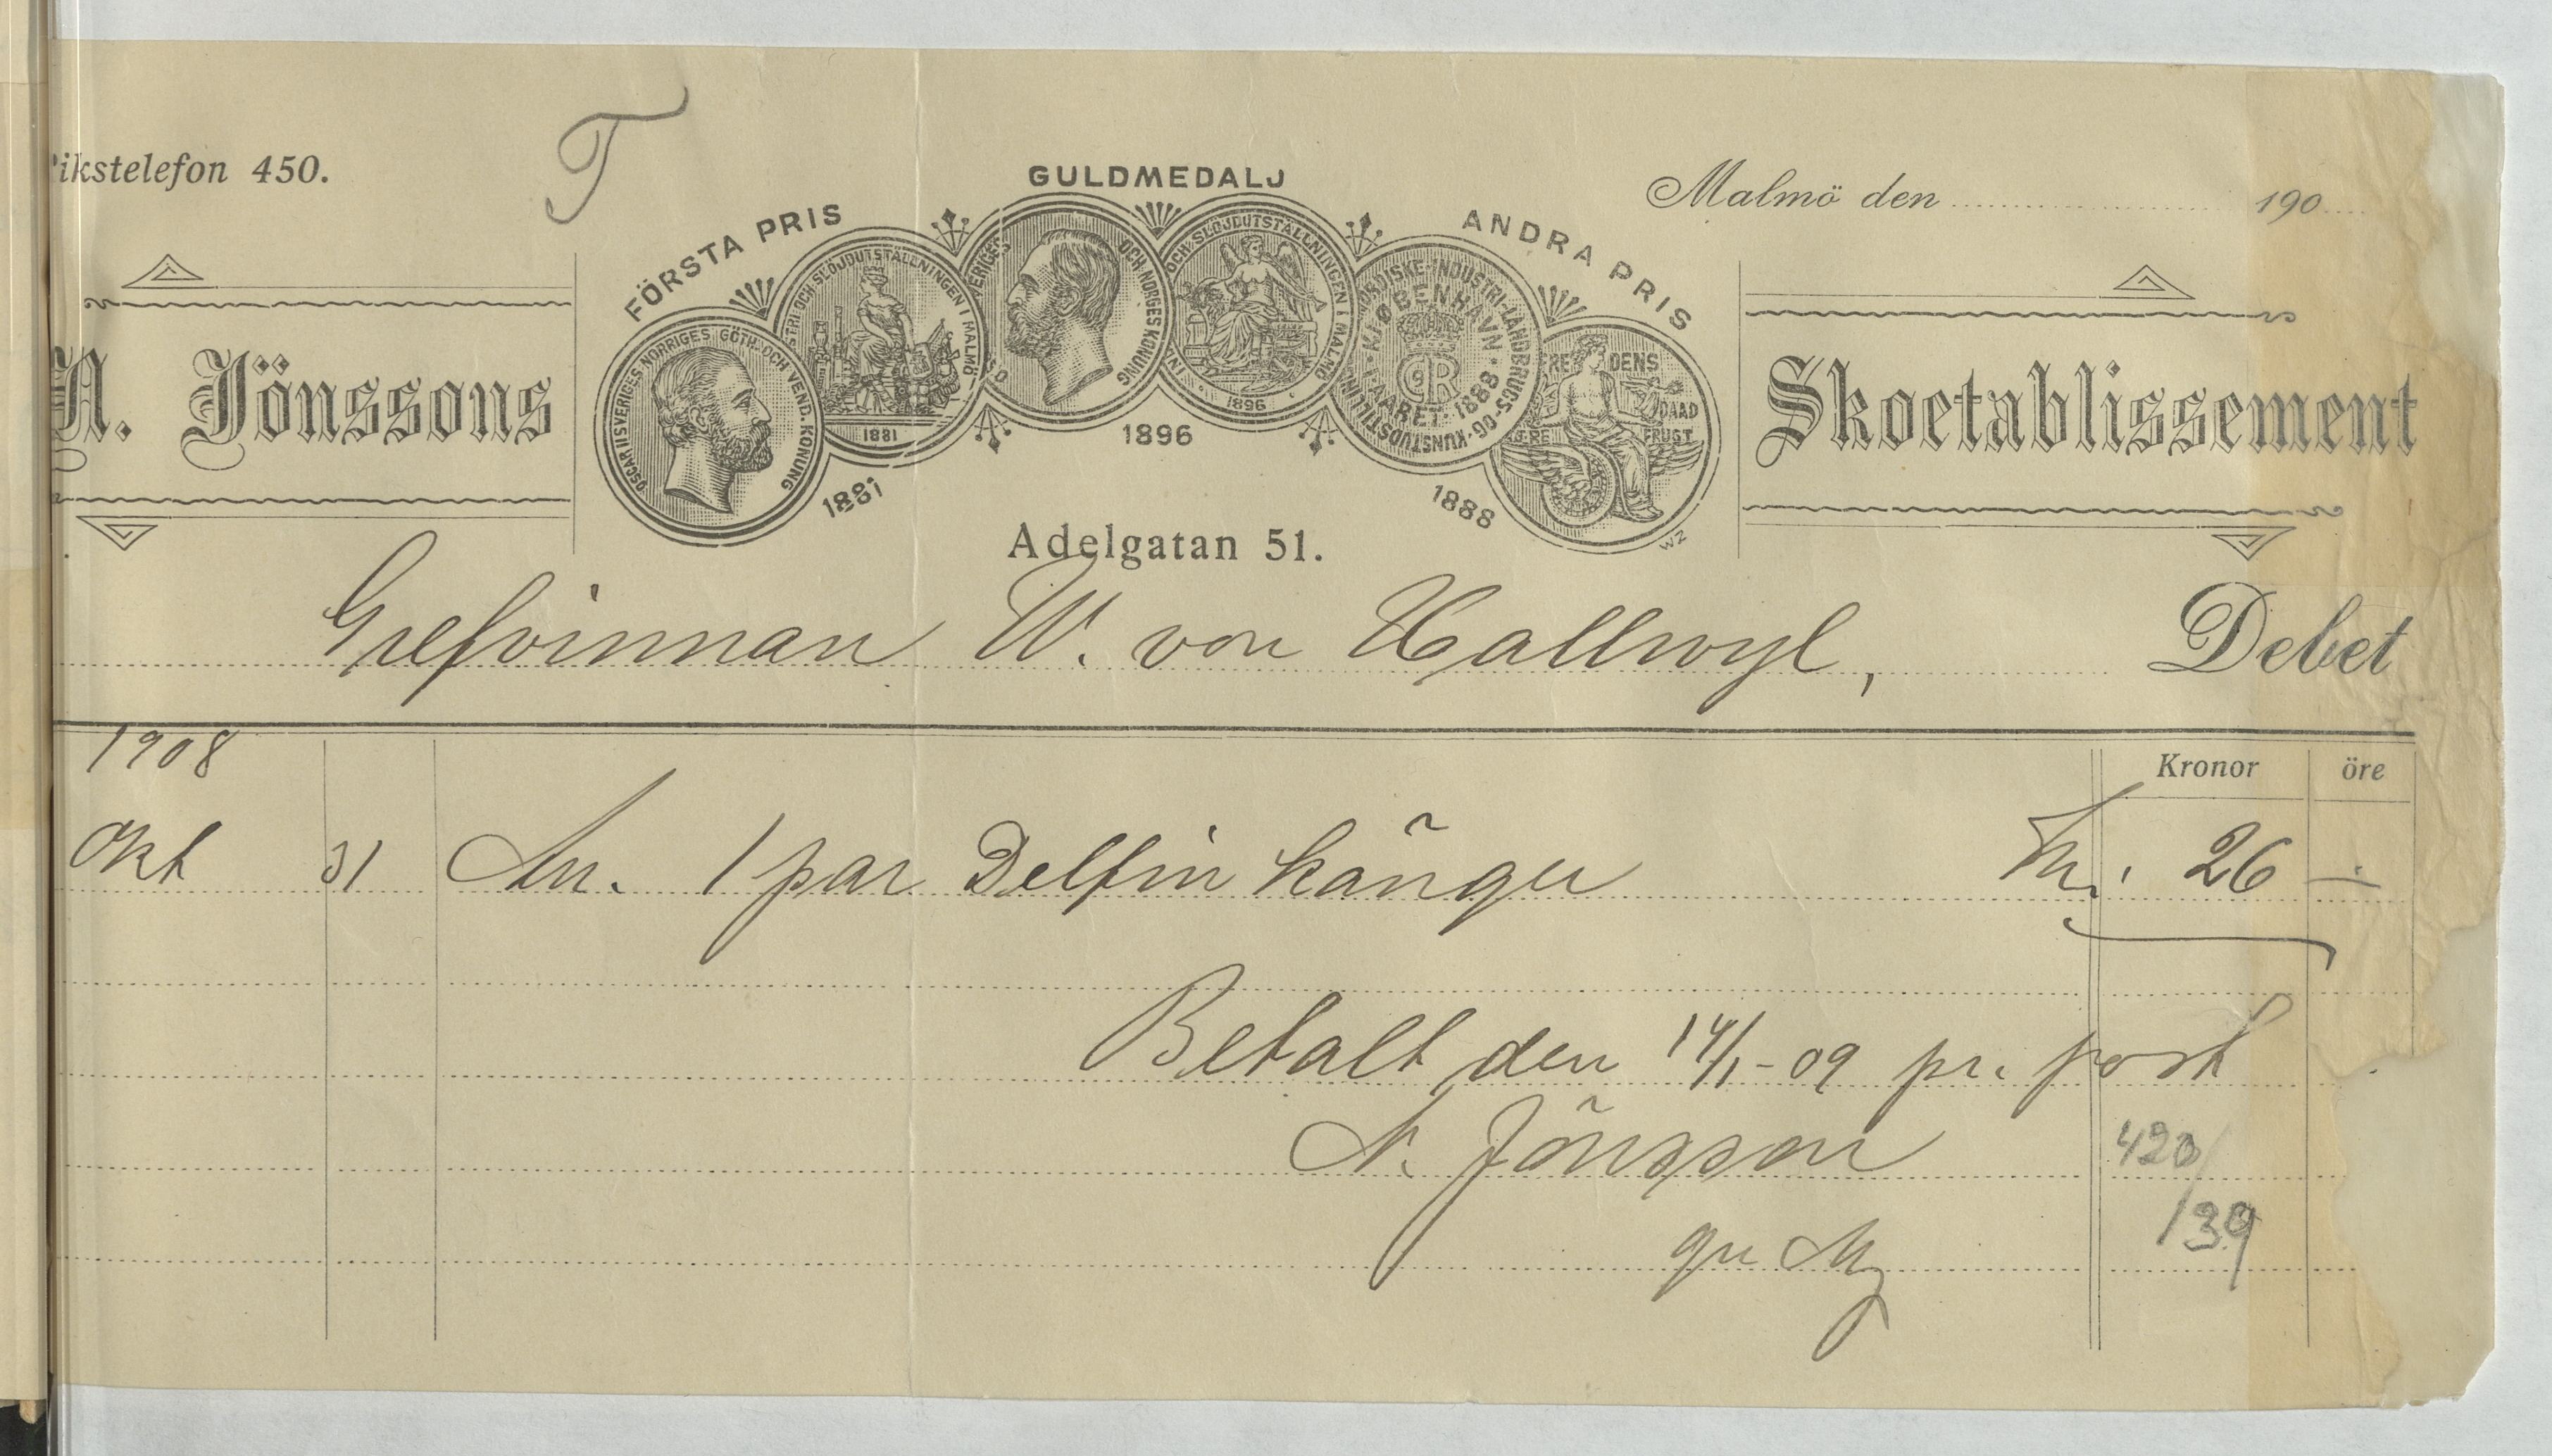 ikstelefon 450.
T
GULDMEDALJ
FÖRSTA PRIS
ANDRA PRIS
Malmö den 190
A. Jönssons
OSCAR II SVERIGES NORRIGES GÖTH. OCH VEND. KONUNG
TRI OCH SLÖJDUTSTÄLLNINGEN I MALMÖ
1881
VERIGES OCH NORGES KONUNG
OCH SLÖJDUTSTÄLLNINGEN I MALMÖ
1896
NORDISKE-INDUSTRI-LANDBRUGS-OG-KUNSTUDSTILLING
KJØBENHAVN
AARET 1888
FREDENS DAAD
FRUGT
Skoetablissement
1881
1896
1888
WZ
Adelgatan 51.
Grefvinnan W. von Hallwyl, Debet
1908
Kronor öre
Okt 31 An. 1 par Delfin kängor Kr: 26 –
Betalt den 14/1-09 pr. post
A. Jönsson
gm
420/
139